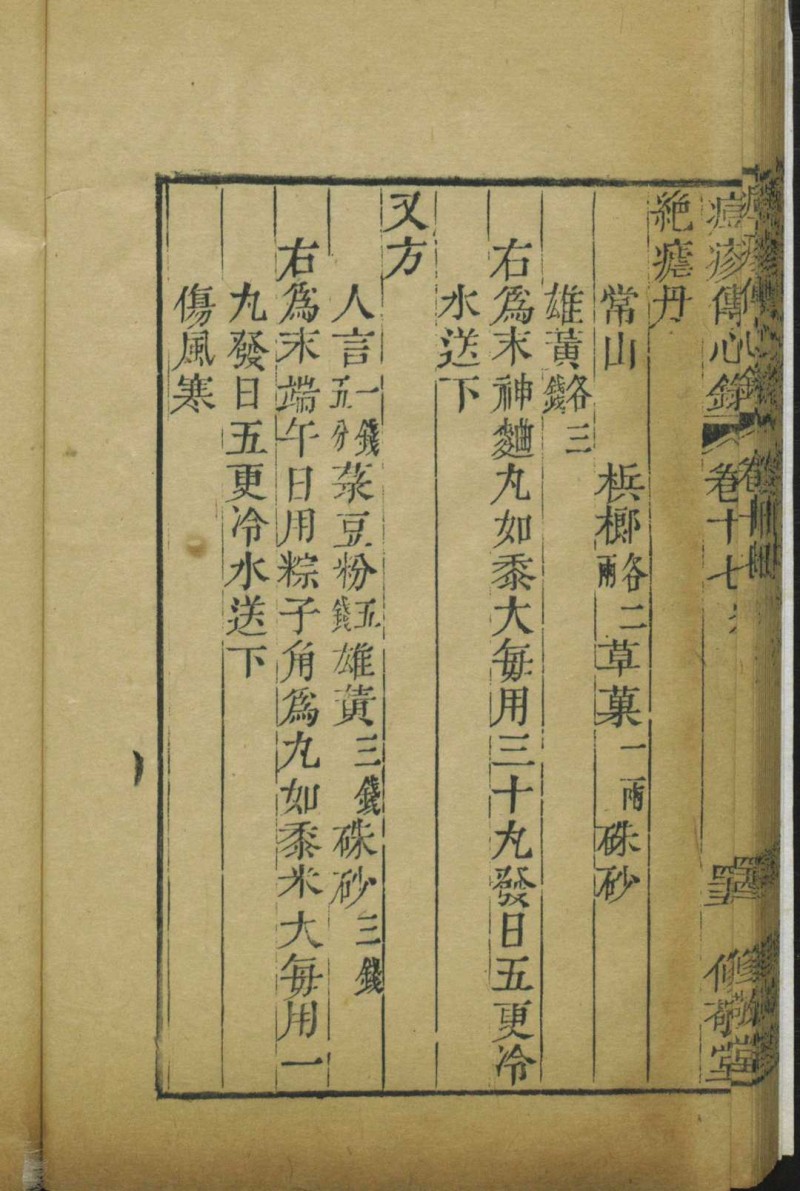 痘疹傳心錄 卷十七 修敬堂
絶瘧丹
常山 梹榔各二兩 草菓一兩 硃砂
雄黃各三錢
右爲末神麯丸如黍大每用三十丸發日五更冷
水送下
又方
人言一錢五分 菉豆粉五錢 雄黃三錢 硃砂三錢
右爲末端午日用粽子角爲丸如黍米大每用一
丸發日五更冷水送下
傷風寒